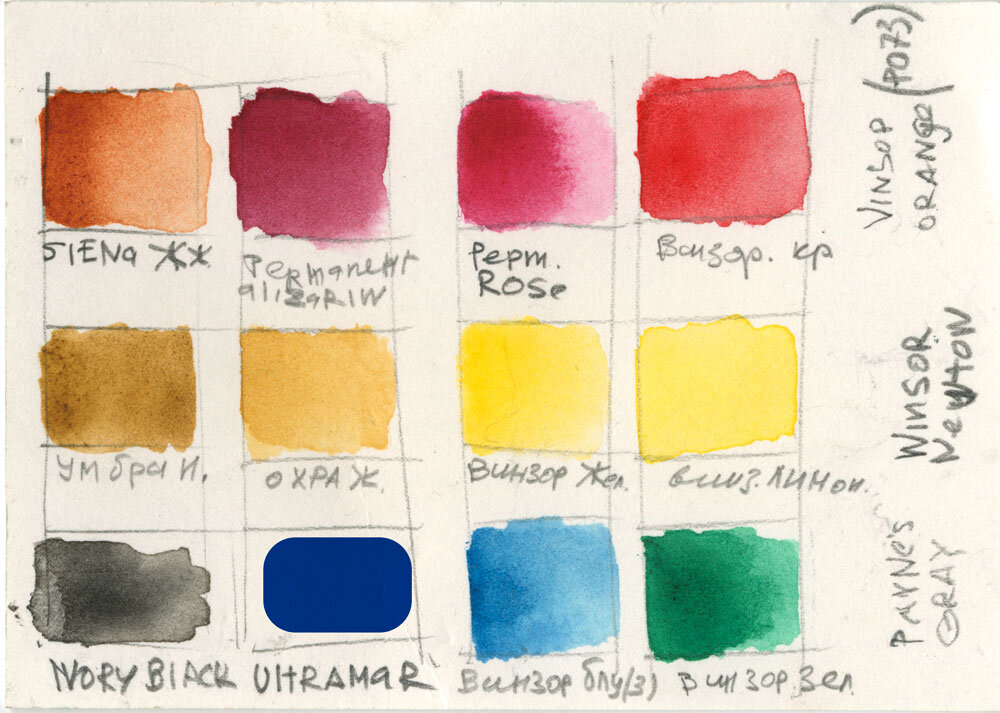 SIENA ЖЖ
Permanent
alizarIN
Perm.
ROSe
Винзор. кр
Умбра И.
ОХРА Ж.
Винзор Жел.
винз. Лимон.
IVORY BLACK
UltRAMAR
Винзор блу(з)
Винзор зел
VINSOP
ORANGe (PO73)
WINSOR
NewtON
PAYNe's
GRAY